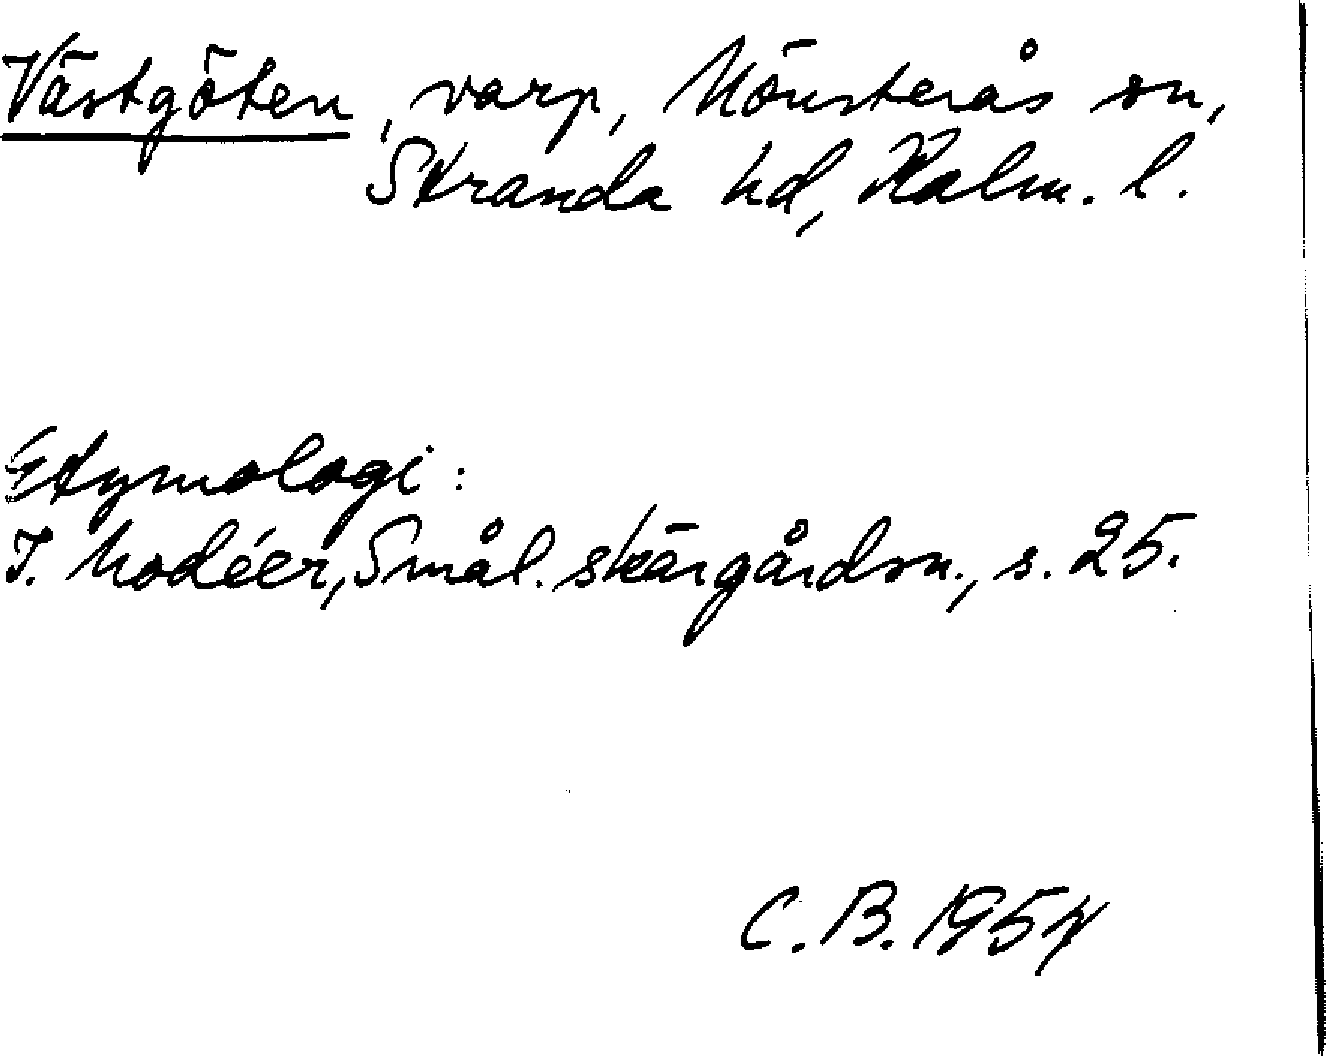 Västgöten, varp, Mönsterås sn,
Stranda hd, Kalm. l.
Etymologi:
I. Modéer, Smål. skärgårdsn., s. 25.
C. B. 1954